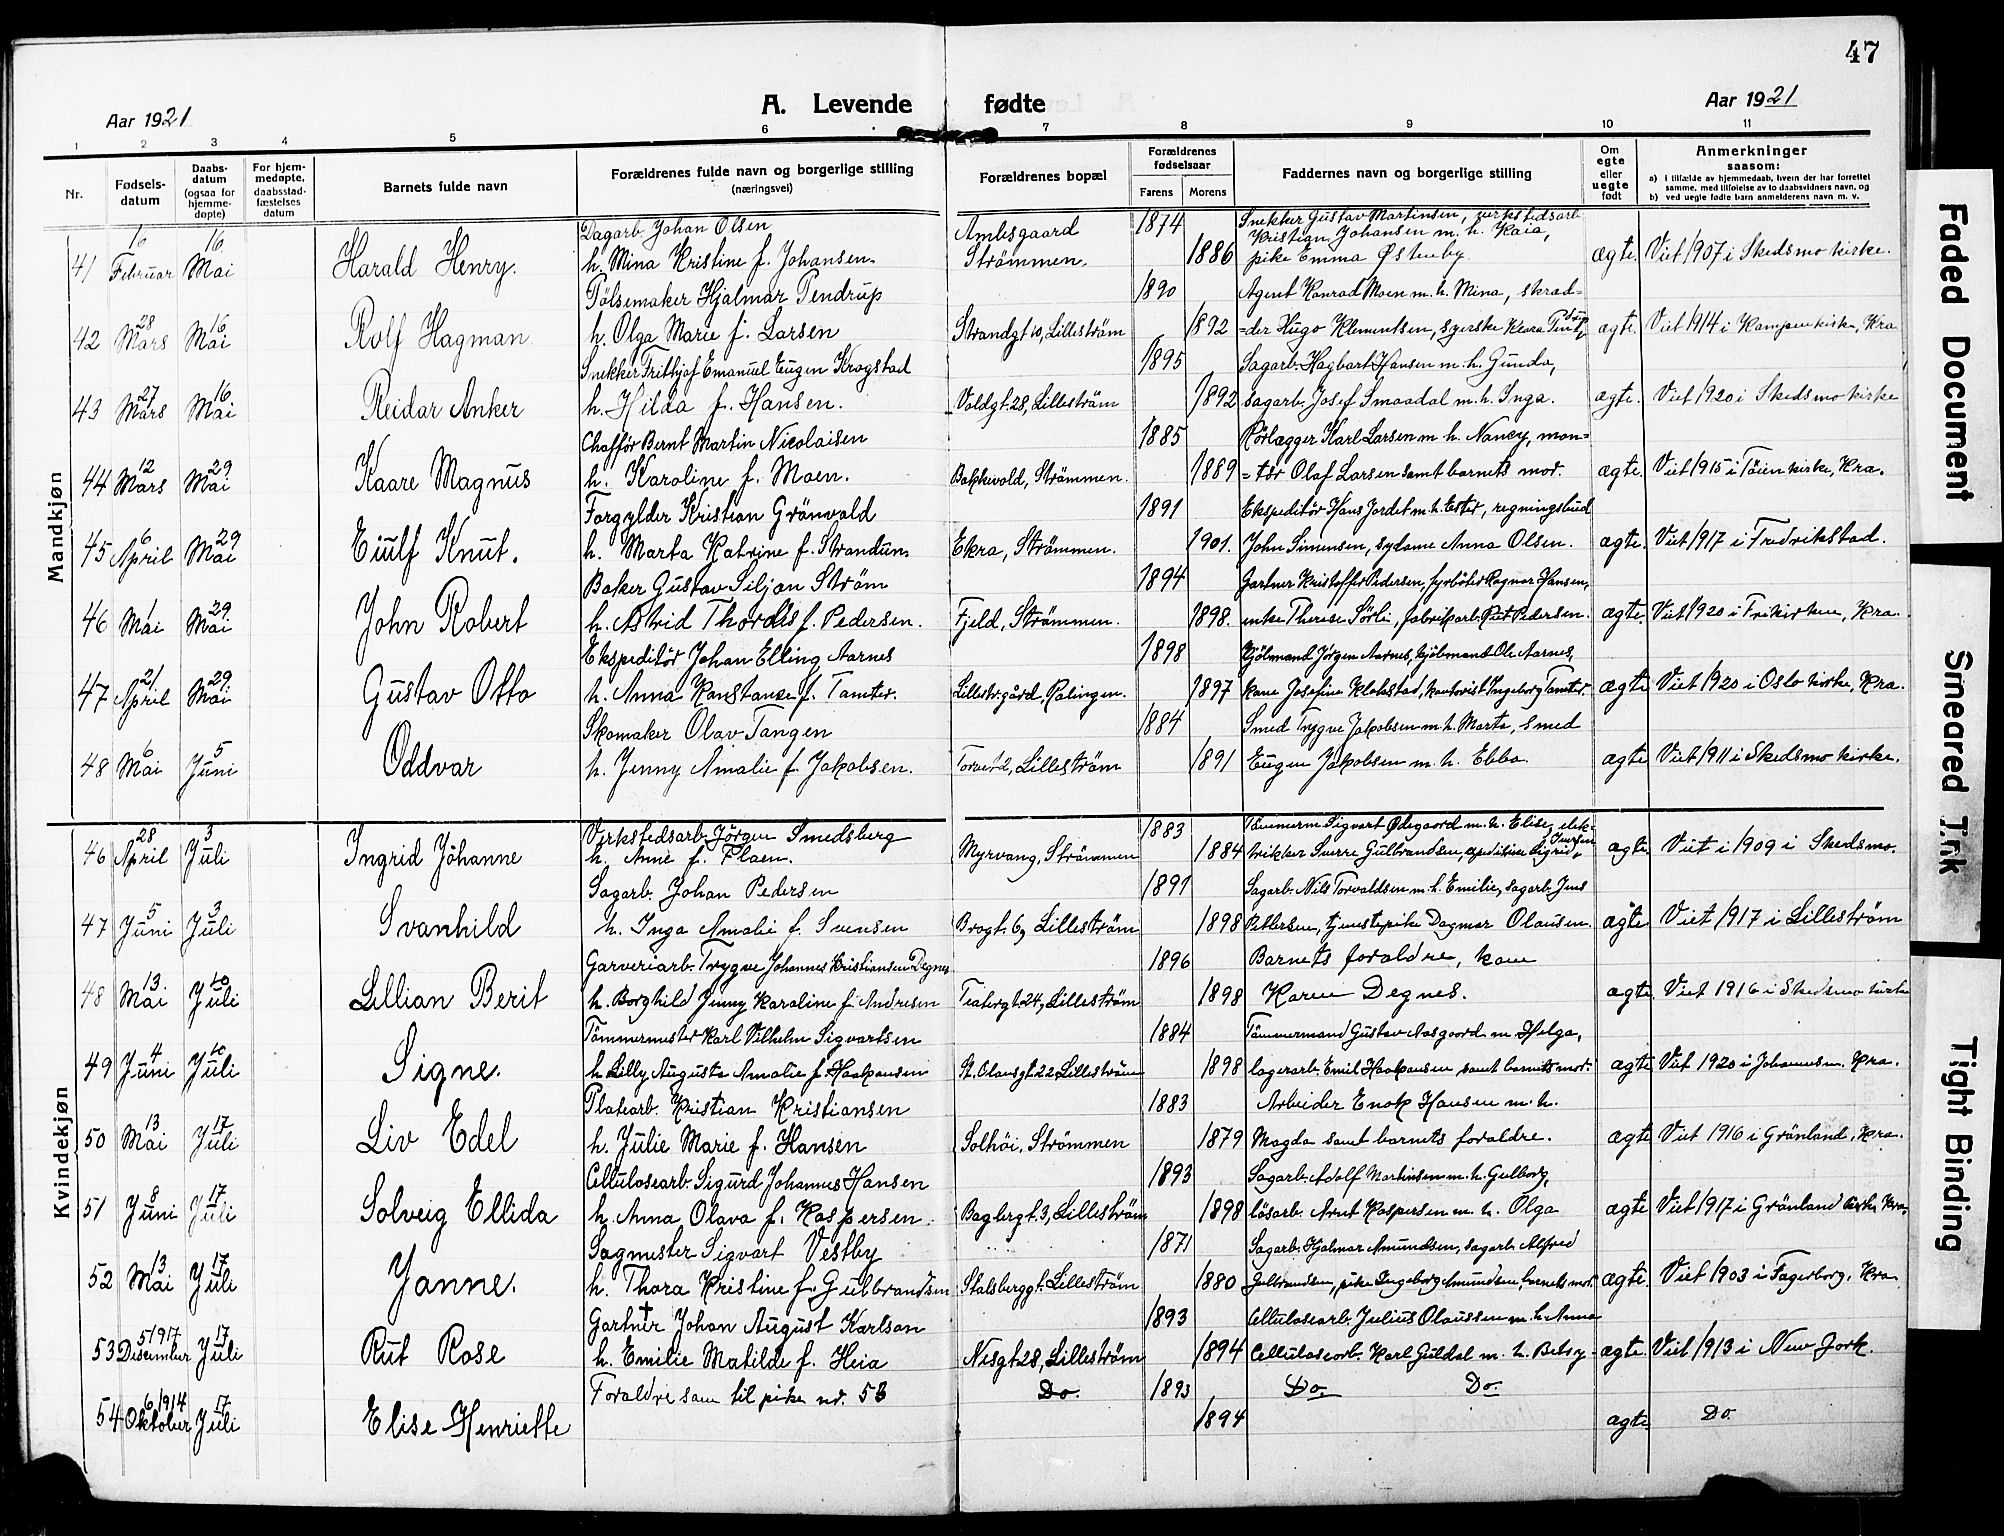 47
Aar 1921
A. Levende fødte
Aar 1921
1 2 3 4 5 6 7 8 9 10 11
Nr.
Fødsels-
datum
Daabs-
datum
(ogsaa for
hjemme-
døpte)
For hjem-
medøpte,
daabsstad-
fæstelses
datum
Barnets fulde navn
Forældrenes fulde navn og borgerlige stilling
(næringsvei)
Forældrenes bopæl
Forældrenes
fødselsaar
Farens Morens
Faddernes navn og borgerlige stilling
Om
egte
eller
uegte
født
Anmerkninger
saasom:
a) i tilfælde av hjemmedaab, hvem der har forrettet
samme, med tilføielse av to daabsvidners navn, og
b) ved uegte fødte barn anmelderens navn m. v.
Mandkjøn
16 16 Dagarb. Johan Olsen Ambesgaard 1874 Snekker Gustav Martinsen, verkstedsarb.
Kristian Johansen m. h. Kaia,
41 Februar Mai Harald Henry. h. Mina Kristine f. Johansen. Strömmen. 1886 pike Emma Østenby ægte. Viet 1907 i Skedsmo kirke.
Pölsemaker Hjalmar Tendrup 1890 Agent Konrad Moen m. h. Mina, skræd=
28 16
42 Mars Mai Rolf Hagman h. Olga Marie f. Larsen Strandgt 10, Lilleström 1892 =der Hugo Klementsen, syerske Klara ægte. Viet 1914 i Kampen kirke, Kra
Snekker Frithjof Emanuel Eugen Krogstad 1895 Sagarb. Hagbart Hansen m. h. Gunda,
27 16
43 Mars Mai Reidar Anker h. Hilda f. Hansen. Voldgt. 28, Lilleström 1892 sagarb. Josef Smaadal m. h. Inga. ægte. Viet 1920 i Skedsmo kirke
Chafför Bernt Martin Nicolaisen 1885 Rörlægger Karl Larsen m. h. Nancy, mon=
12 29
44 Mars Mai Kaare Magnus h. Karoline f. Moen. Bakkevold, Strömmen. 1889 =tör Olaf Larsen samt barnets mor. ægte. Viet 1915 i Töien kirke, Kra.
Forgylder Kristian Grönvold 1891 Ekspeditör Hans Jordet m. h. Ester, regningsbud
6 29
45 April Mai Eiulf Knut. h. Marta Katrine f. Strandun. Ekra, Strömmen. 1901. John Simensen, sydame Anna Olsen. ægte. Viet 1917 i Fredrikstad.
Baker Gustav Siljan Ström 1894 Gartner Kristoffer Pedersen, fyrböter Ragnar Hansen,
1 29
46 Mai Mai John Robert h. Astrid Thordis f. Pedersen. Fjeld, Strömmen. 1898. enke Therese Sörli, fabrikarb. Rut Pedersen. ægte. Viet 1920 i Frikirken, Kra.
Ekspeditör Johan Elling Aarnes 1898 Kjölmand Jörgen Aarnes, kjölmand Ole Aarnes,
21 29
47 April Mai Gustav Otto h. Anna Konstanse f. Tamter. Lillestr. gård, Rælingen. 1897 kone Josefine Klokstad, kontorist Ingeborg Tamter. ægte. Viet 1920 i Oslo kirke, Kra.
Skomaker Olav Tangen 1884 Smed Trygve Jakobsen m. h. Marta, smed
6 5
48 Mai Juni Oddvar h. Jenny Amalie f. Jakobsen. Torvet 2, Lilleström 1891 Eugen Jakobsen m. h. Ebba. ægte Viet 1911 i Skedsmo kirke.
Kvindekjøn
28 3 Verkstedsarb. Jörgen Smedsberg 1883 Tömmerm Sigvart Ødegaard m. h. Elise, elek-
46 April Juli Ingrid Jöhanne h. Anne f. Flaen. Myrvang, Strömmen 1884 triker Sverre Gulbrandsen, Sigrid ægte. Viet i 1909 i Skedsmo.
Sagarb. Johan Pedersen 1891 Sagarb. Nils Torvaldsen m. h. Emilie, sagarb. Jens
5 3
47 Juni Juli Svanhild h. Inga Amalie f. Svensen Brogt. 6, Lilleström 1898 Pettersen, tjenestepike Dagmar Olausen. ægte. Viet 1917 i Lilleström
Garveriarb. Trygve Johannes Kristiansen Degnes 1896 Barnets forældre, kone
13 10
48 Mai Juli Lillian Berit h. Borghild Jenny Karoline f. Andresen Teatergt. 24, Lilleström 1898 Karen Degnes. ægte. Viet 1916 i Skedsmo kirke
Tömmermester Karl Vilhelm Sigvartsen 1884 Tömmermand Gustav Aasgaard m. Helga,
4 10
49 Juni Juli Signe. h. Lilly Augusta Amalie f. Haakonsen St. Olavsgt. 22 Lilleström 1898 lagerarb. Emil Haakonsen samt barnets mor. ægte Viet 1920 i Johannesm. Kra.
Platearb. Kristian Kristiansen 1883 Arbeider Enok Hansen m. h.
13 17
50 Mai Juli Liv Edel h. Julie Marie f. Hansen Solhöi, Strömmen 1879 Magda samt barnets forældre. ægte Viet 1916 i Grönland, Kra.
Cellulosearb. Sigurd Johannes Hansen 1893 Sagarb. Adolf Martinsen m. h. Gulborg,
8 17
51 Juni Juli Solveig Ellida h. Anna Olava f. Kaspersen. Baglergt. 3, Lilleström 1898 lösarb. Arnt Kaspersen m. h. Olga ægte Viet 1917 i Grönland kirke Kra.
Sagmester Sigvart Vestby 1871 Sagarb. Hjalmar Amundsen, sagarb. Alfred
13 17
52 Mai Juli Janne. h. Thora Kristine f. Gulbrandsen Stalsberggt. Lilleström 1880 Gulbrandsen, pike Ingeborg Amundsen, barnets mor. ægte. Viet 1903 i Fagerborg, Kra
Gartner Johan August Karlson 1893 Cellulosearb. Julius Olaussen m. h. Anna
5/1917 17
53 Desember Juli Rut Rose h. Emilie Matilde f. Heia Nesgt. 28, Lilleström 1894 Cellulosearb. Karl Guldal m. h. Betsy. ægte. Viet 1913 i New Jork.
Forældre som til pike nr. 53 Do. 1893 Do. Do.
6/1914 17
54 Oktober Juli Elise Henriette 1894 ægte. Do.
Faded Document
Smeared Ink
Tight Binding